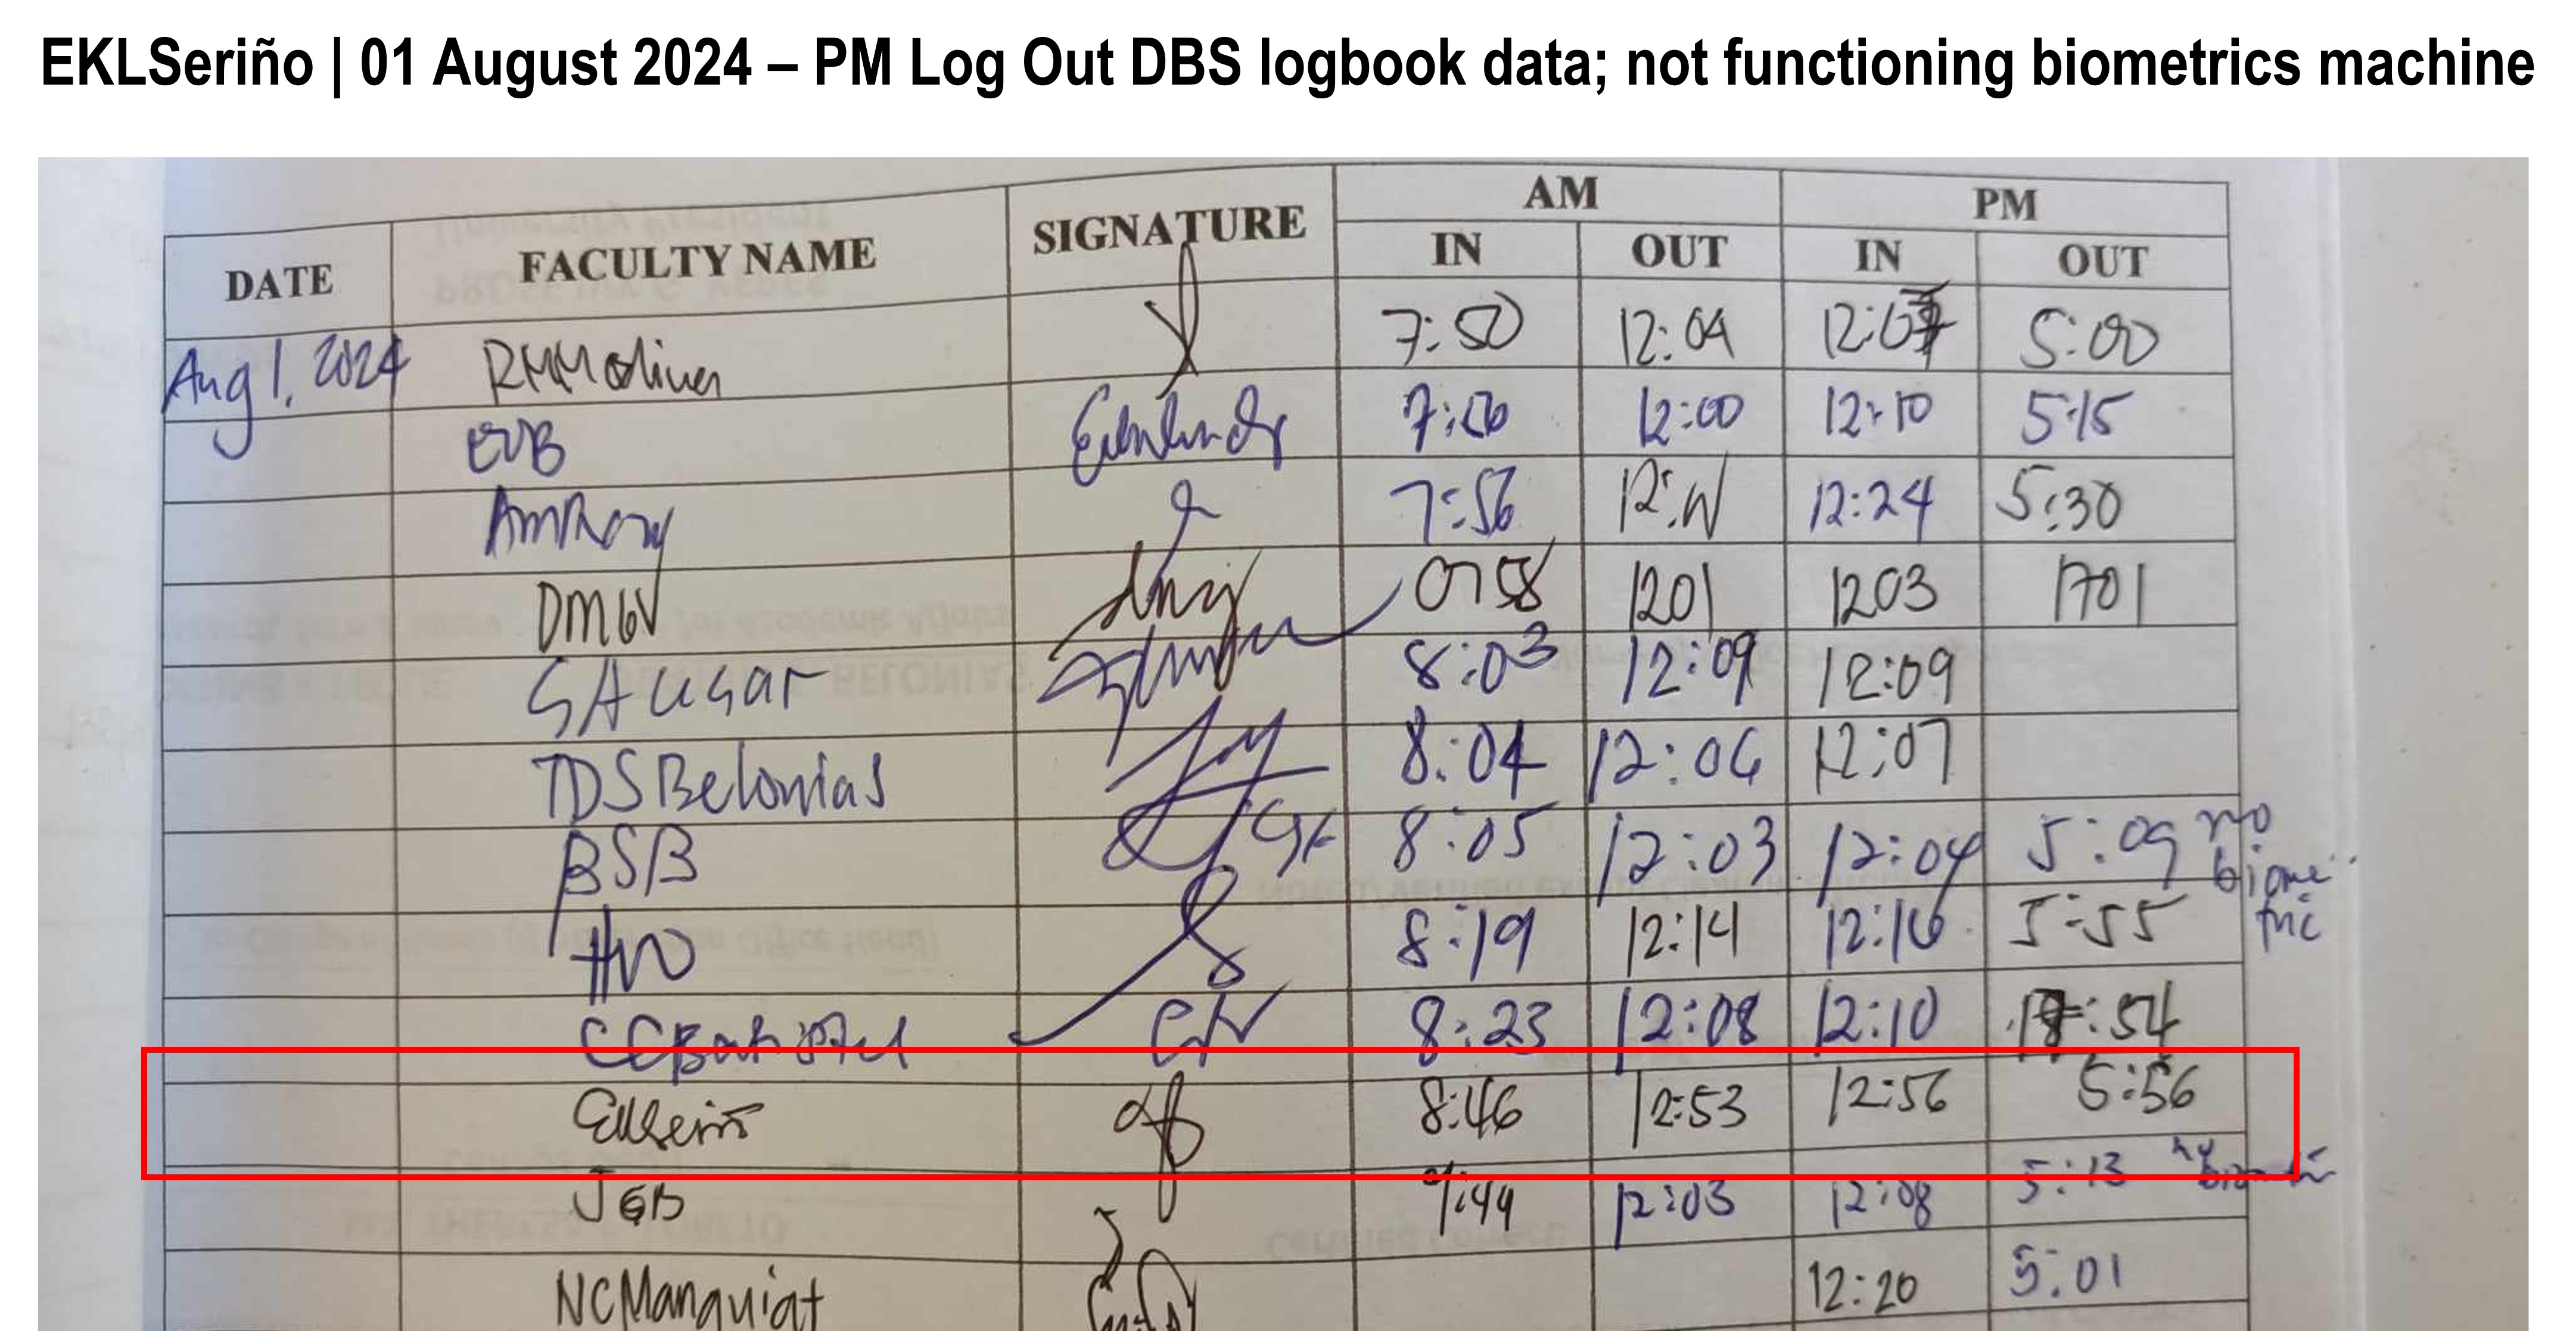 EKLSeriño | 01 August 2024 – PM Log Out DBS logbook data; not functioning biometrics machine
DATE FACULTY NAME SIGNATURE AM PM
IN OUT IN OUT
Aug 1, 2024 RMMoliner 7:50 12:04 5:00
EVB 7:56 12:00 12:10 5:15
AmRony 7:56 12:24 5:30
DMGV 0758 1201 1203 1701
SAUgar 8:03 12:09 12:09
TDSBelonias 8:04 12:06 12:07
BSB 8:05 12:03 12:04 5:09 no biome tric
8:19 12:14 12:16 5:55
8:23 12:08 12:10 :54
EKLSeriño 8:46 12:53 12:56 5:56
JGB 12:03 12:08 5:13 no
NCManquiat 12:20 5:01